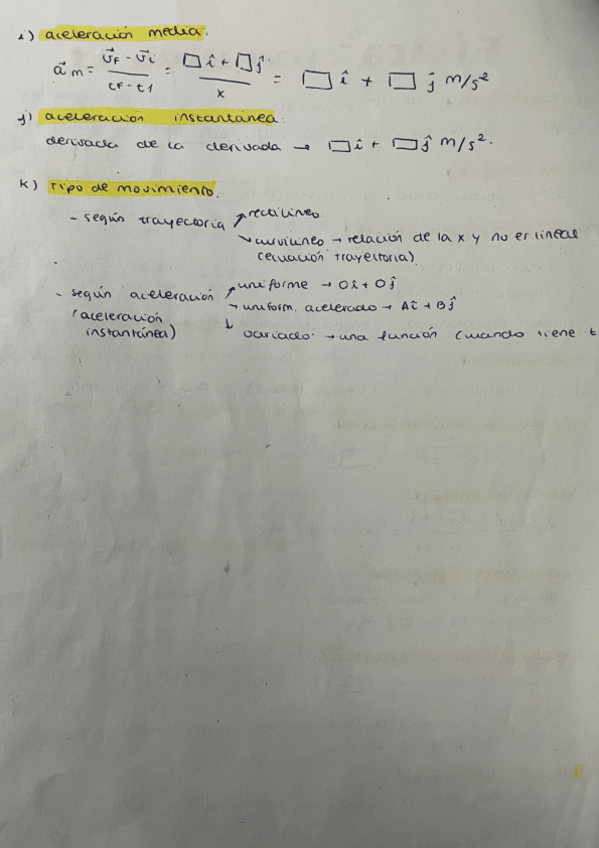 i) aceleración media.
a⃗m = (v⃗F - v⃗i)/(tF - t1) = (□ î + □ ĵ)/x = □ î + □ ĵ m/s²
j) aceleración instantánea:
derivada de la derivada → □ î + □ ĵ m/s².
k) Tipo de movimiento.
- según trayectoria ↗ rectilíneo
↘ curvilíneo → relación de la x y no es lineal
(ecuación trayectoria)
- según aceleración ↗ uniforme → 0î + 0ĵ
(aceleración → uniform. acelerado → Aî + Bĵ
instantánea) ↓ variado: → una función (cuando tiene t